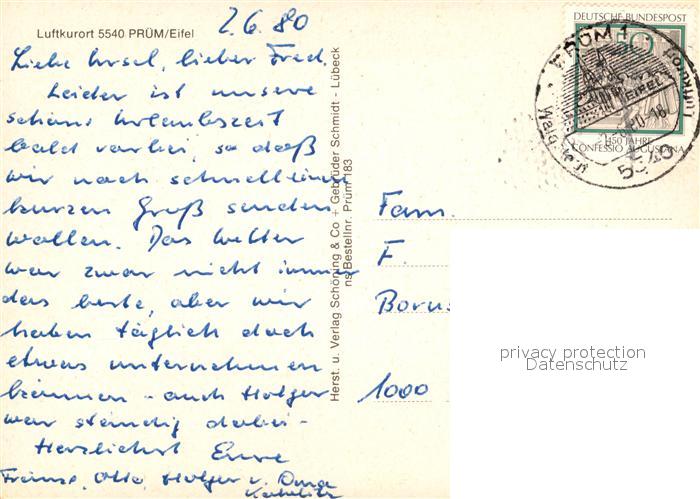 Luftkurort 5540 PRÜM/Eifel
2.6.80
Liebe Ursel, lieber Fred,
Leider ist unsere
schöne Urlaubszeit
bald vorbei, so daß
wir noch schnell einen
kurzen Gruß senden
wollen. Das Wetter
war zwar nicht immer
das beste, aber wir
haben täglich doch
etwas unternehmen
können - auch Holger
war ständig dabei -
Herzlichst Eure
Franze, Otto, Holger u. Oma
Herst. u. Verlag Schöning & Co + Gebrüder Schmidt - Lübeck
ns/Bestellnr. Prüm 183
DEUTSCHE BUNDESPOST
50
450 JAHRE
CONFESSIO AUGUSTANA
PRÜM 1
EIFEL
Luftkurort
5540
Fam.
F.
Borus
1000
privacy protection
Datenschutz